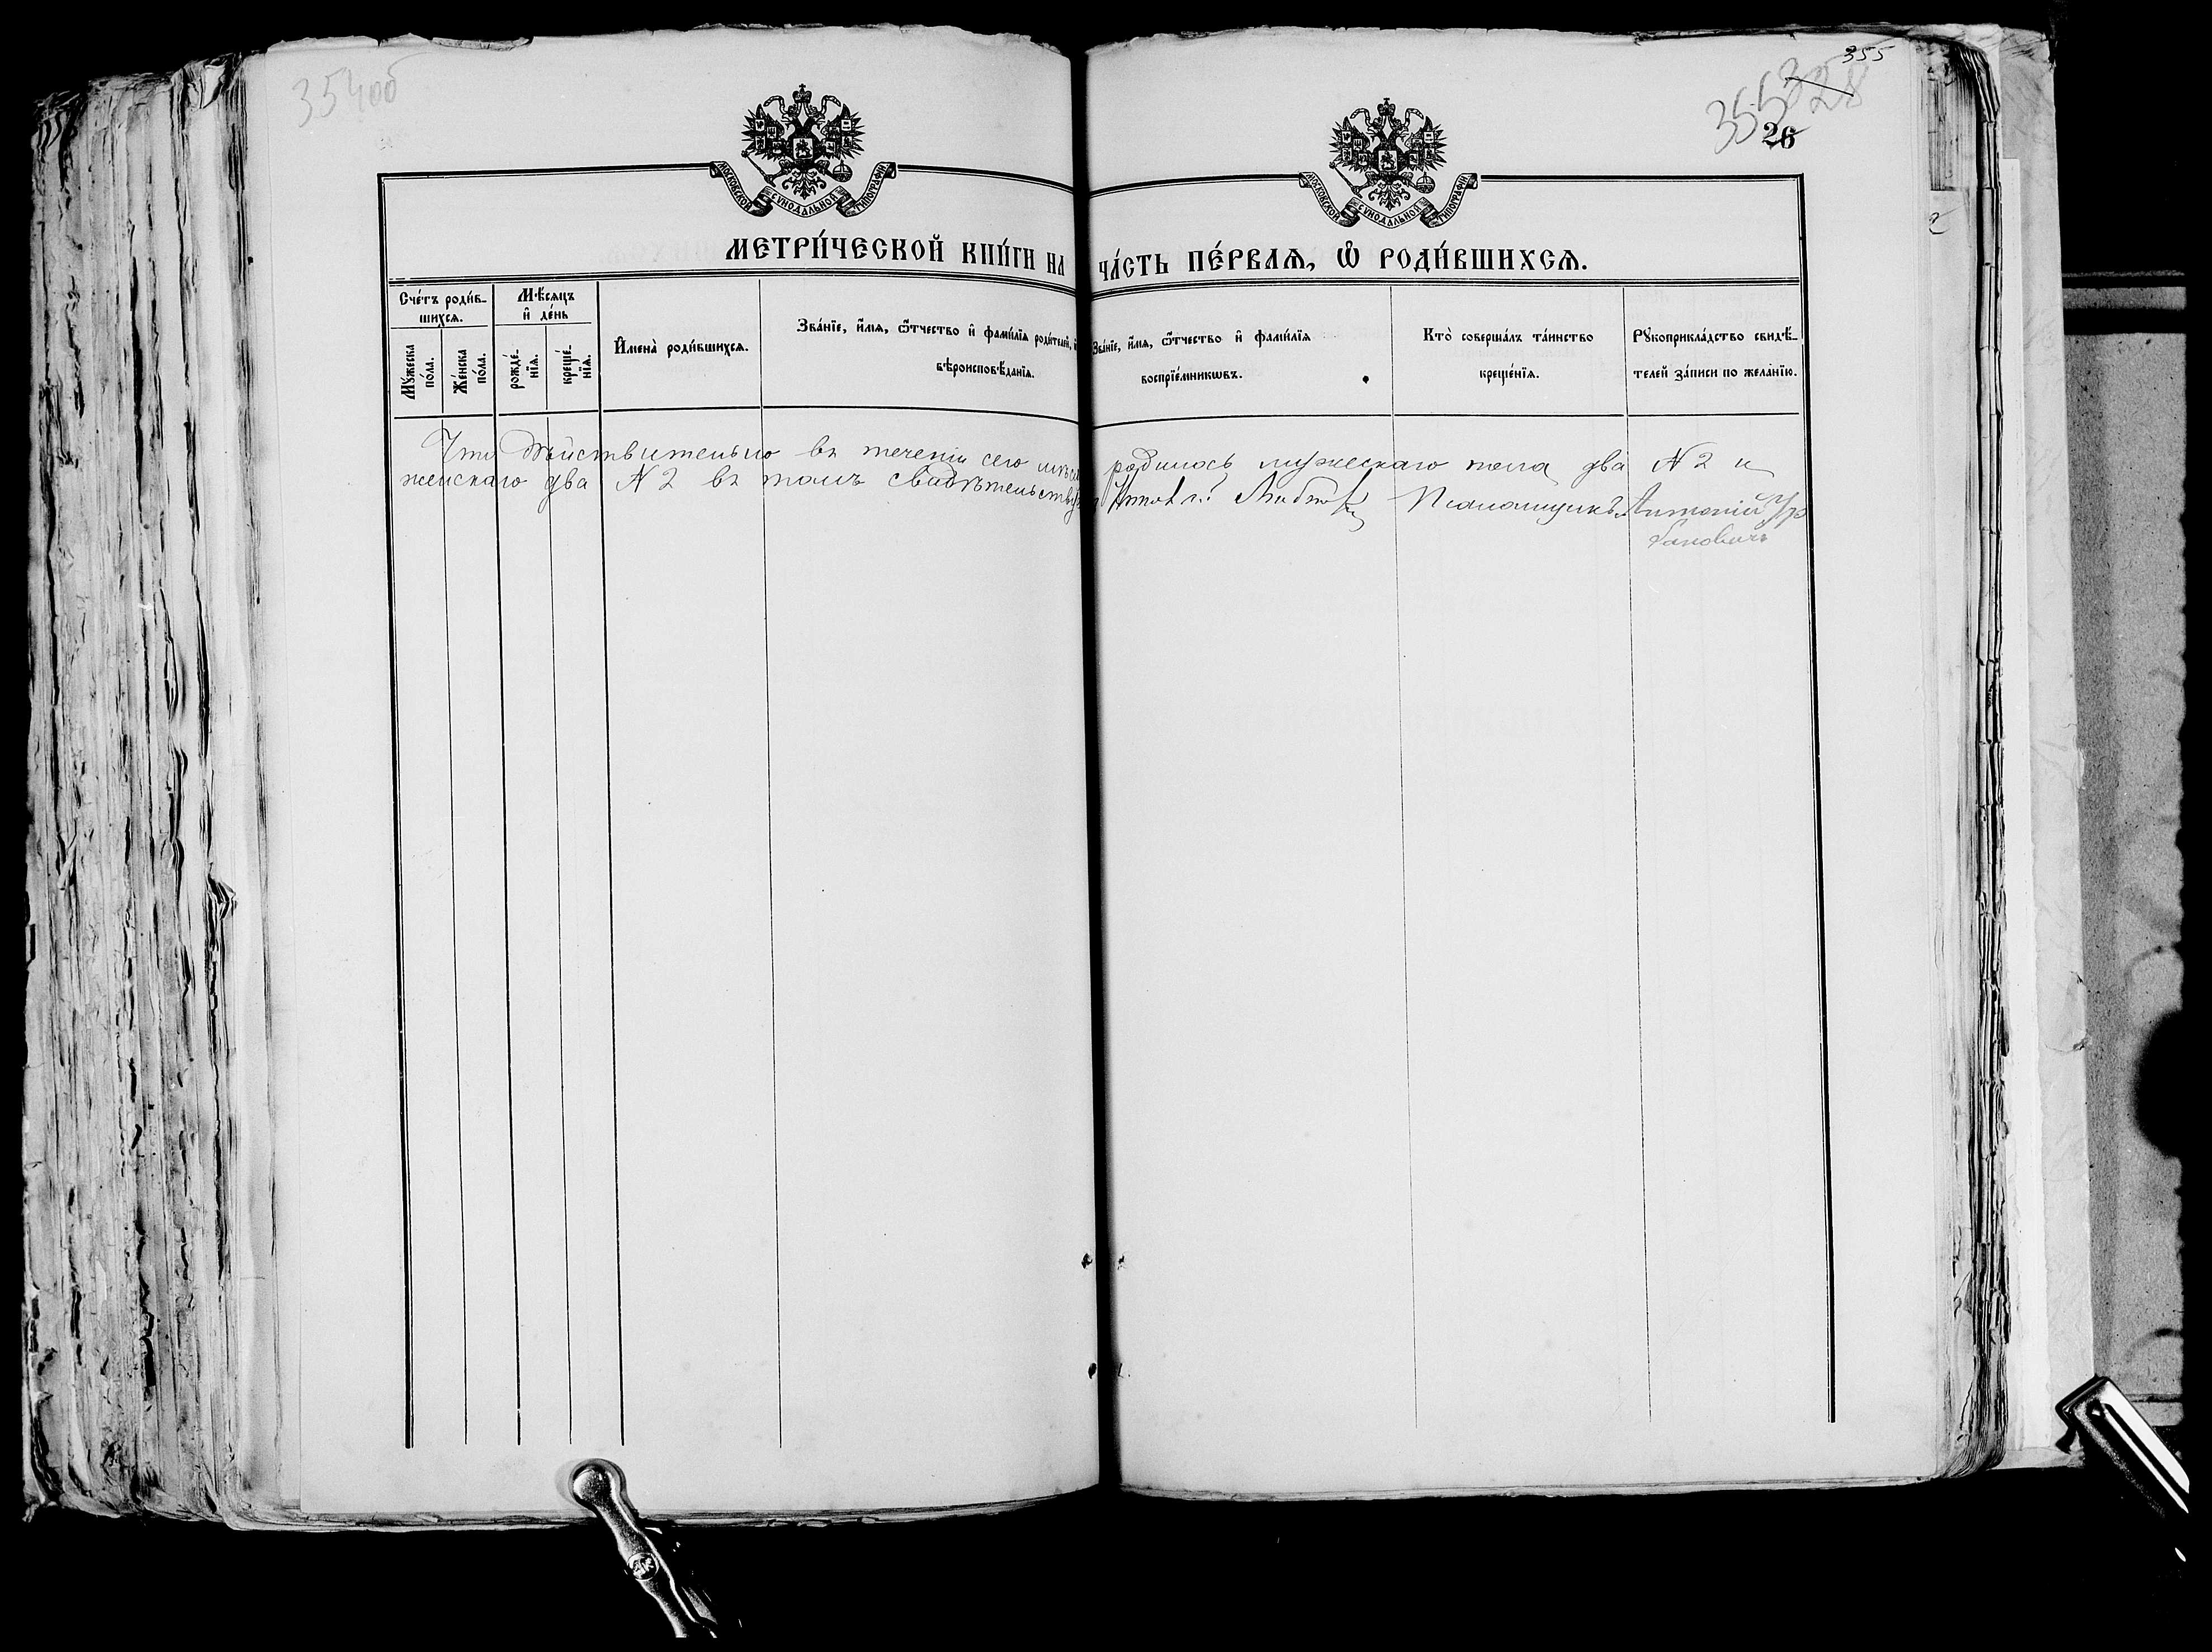 354об
355
355
328
26
МОСКОВСКОЙ СѴНОДАЛЬНОЙ ТИПОГРАФІИ
МОСКОВСКОЙ СѴНОДАЛЬНОЙ ТИПОГРАФІИ
МЕТРИ́ЧЕСКОЙ КНИ́ГИ НА ЧА́СТЬ ПЕ́РВАѦ, Ѽ РОДИ́ВШИХСѦ.
Сче́тъ роди́в-
шихсѧ.
Мꙋ́жеска
по́ла.
Же́нска
по́ла.
Мѣ́сѧцъ
и҆ де́нь
рожде́-
нїѧ.
креще́-
нїѧ.
И҆мена̀ роди́вшихсѧ.
Зва́нїе, и҆́мѧ, ѻ҆́тчество и҆ фамилїѧ роди́телей, и҆
вѣроисповѣ́данїѧ.
Зва́нїе, и҆́мѧ, ѻ҆́тчество и҆ фами́лїѧ
воспрїе́мникѡвъ.
Кто̀ соверша́лъ та́инство
креще́нїѧ.
Рꙋкоприкла́дство свидѣ́-
телей за́писи по жела́нїю.
Что действительно въ теченіи сего мѣся родилось мужескаго пола два № 2 и
женскаго два № 2 въ томъ свидѣтельству Псаломщикъ Антоній Ур
бановичъ